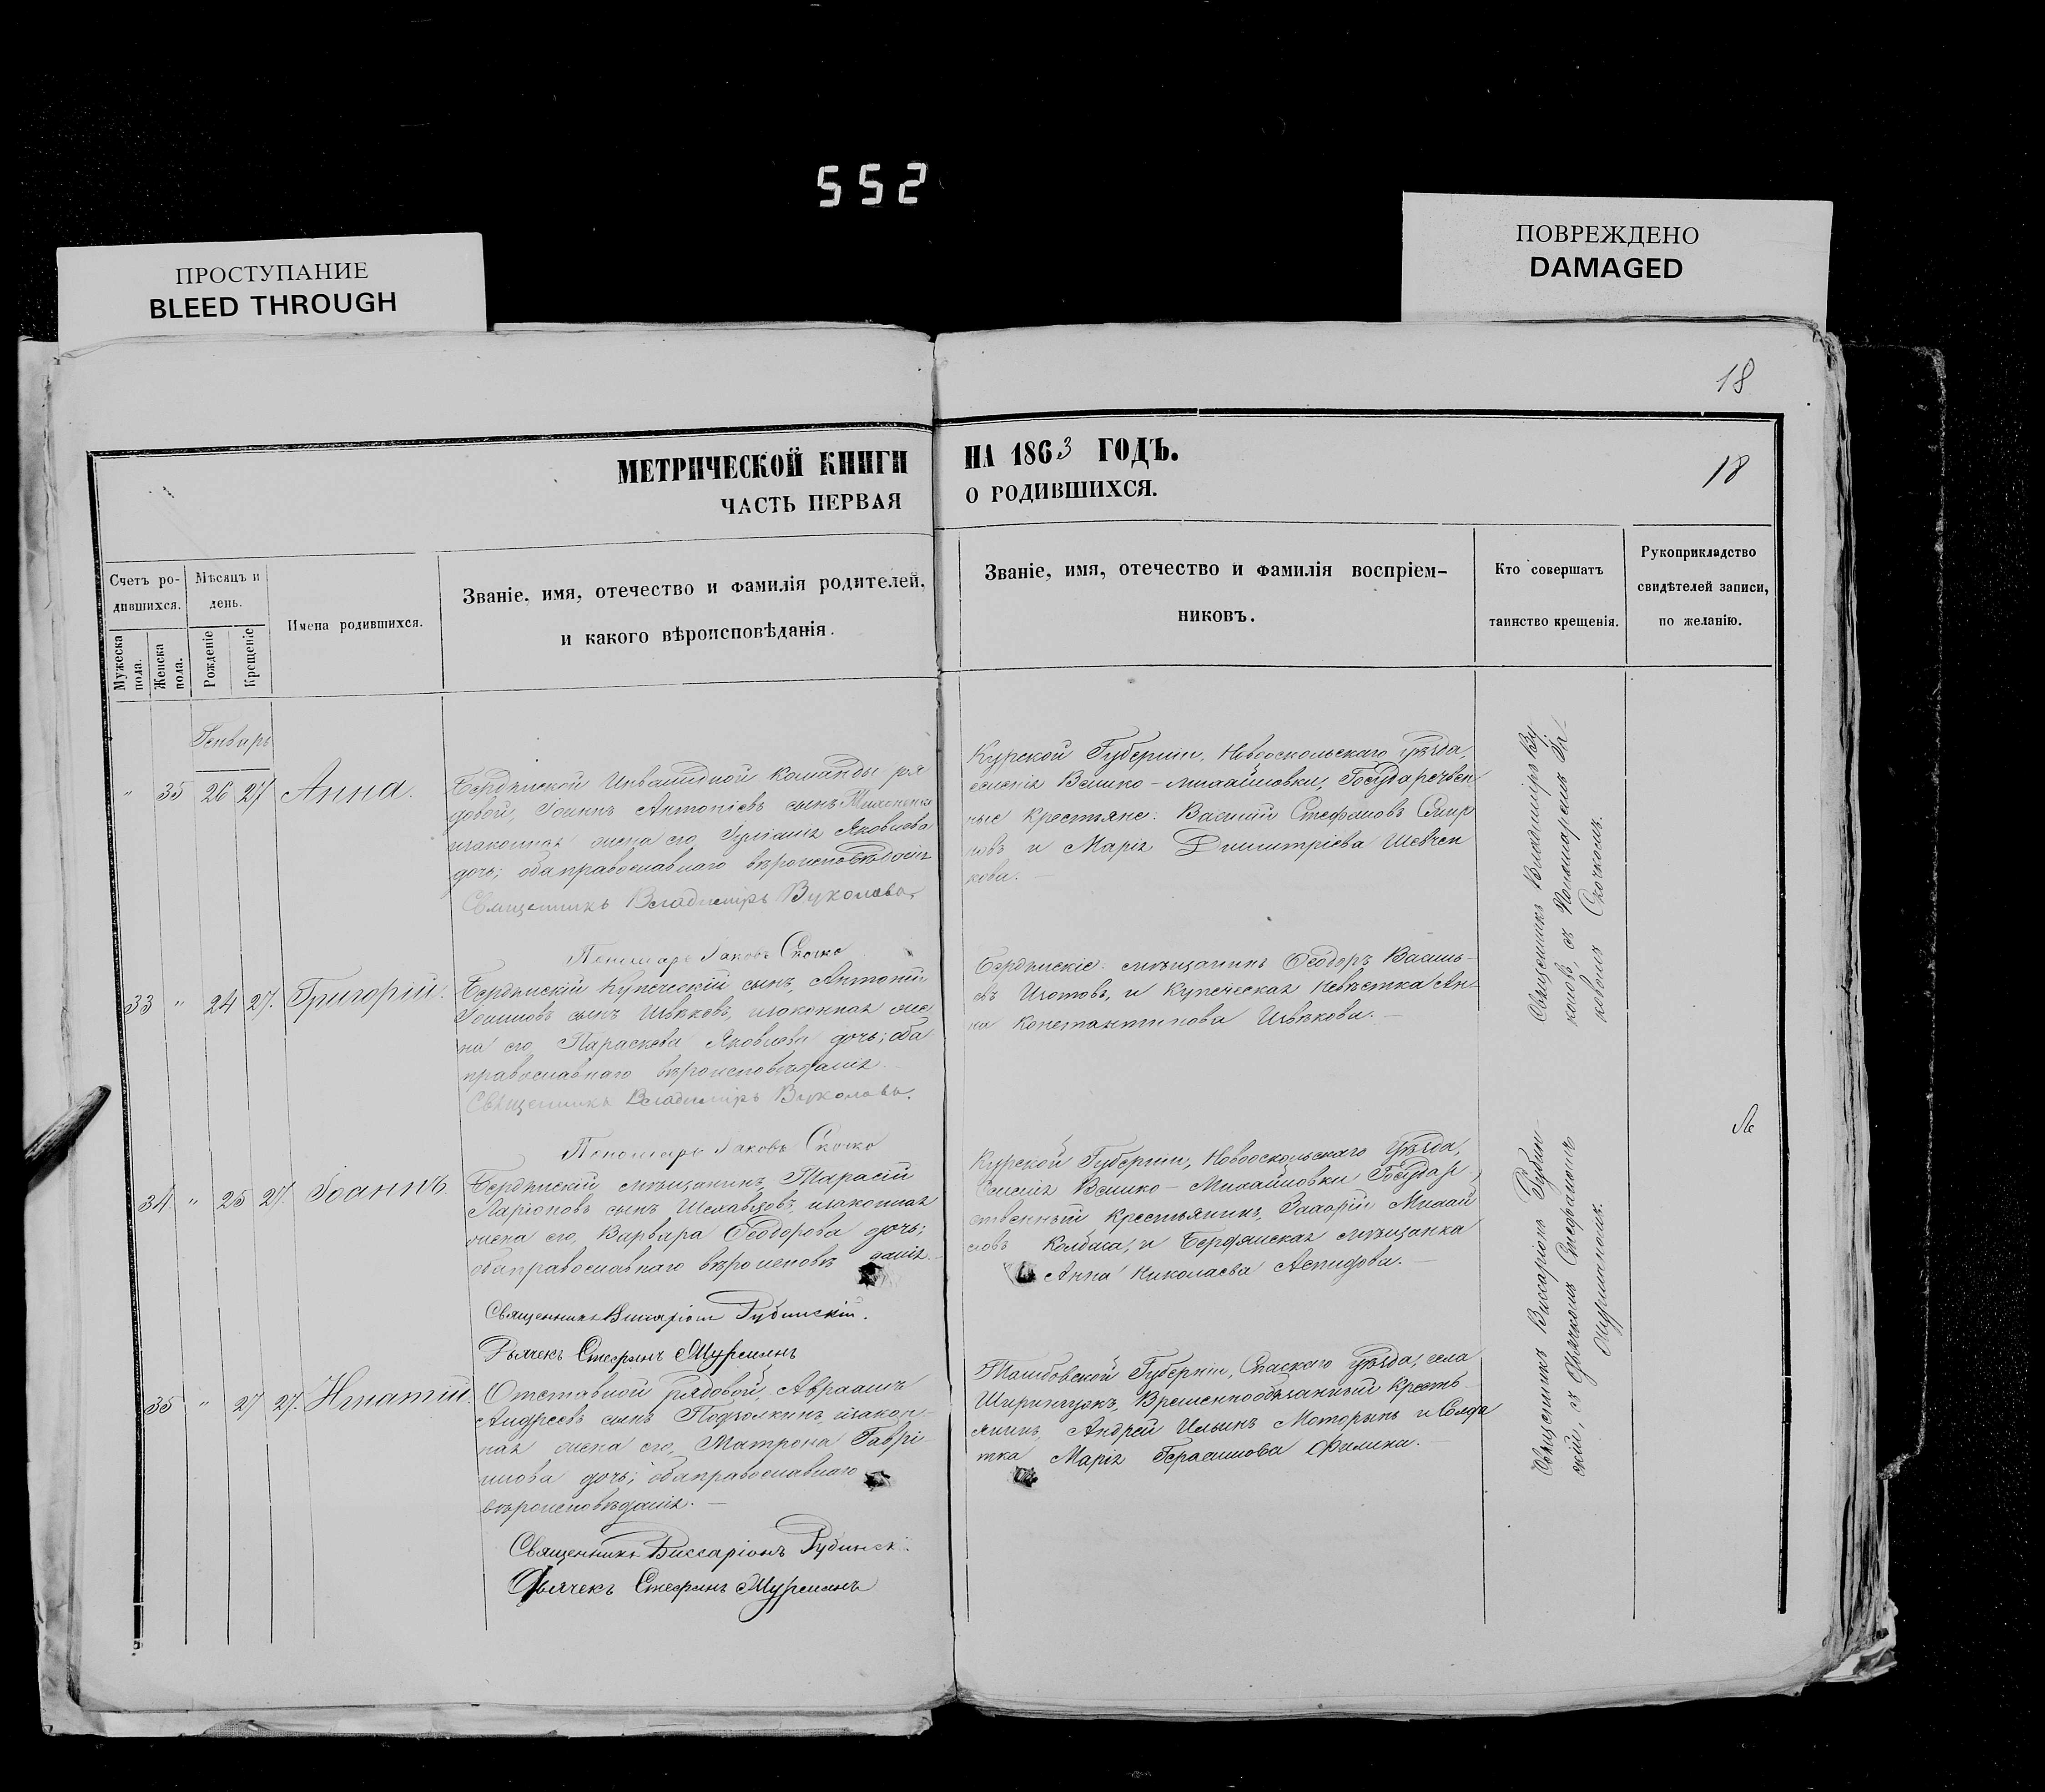 552
ПРОСТУПАНИЕ
BLEED THROUGH
ПОВРЕЖДЕНО
DAMAGED
18
МЕТРИЧЕСКОЙ КНИГИ
ЧАСТЬ ПЕРВАЯ
НА 1863 ГОДЪ.
О РОДИВШИХСЯ.
18
Счетъ ро-
дившихся.
Мужеска пола.
Женска пола.
Мѣсяцъ и
день.
Рожденіе
Крещеніе
Имена родившихся.
Званіе, имя, отечество и фамилія родителей,
и какого вѣроисповѣданія.
Званіе, имя, отечество и фамилія воспріем-
никовъ.
Кто совершатъ
таинство крещенія.
Рукоприкладство
свидѣтелей записи,
по желанію.
Генварь
" 35 26 27 Анна.
Бердянской Инвалидной Команды ря
довой, Іоаннъ Антоніевъ сынъ
законная жена его Іуліанія Яковлева
дочь; оба православнаго вѣроисповѣданія
Священникъ Владиміръ Вуколовъ
Пономарь Іаковъ Скочко
Курской Губерніи, Новооскольскаго уѣзда,
селенія Велико-Михайловки, Государствен
ные Крестьяне: Василій Стефановъ
новъ и Марія Димитріева Шевчен
кова.
Священникъ Владиміръ Ву
коловъ, съ Пономаремъ Іа-
ковомъ Скочкомъ.
33 " 24 27. Григорій.
Бердянскій Купеческій сынъ, Антоній
Іоанновъ сынъ Извѣковъ, законная же
на его, Параскева Яковлева дочь; оба
православнаго вѣроисповѣданія
Священникъ Владиміръ Вуколовъ.
Пономарь Іаковъ Скочко
Бердянскіе: мѣщанинъ Ѳеодоръ Василь-
евъ Изотовъ, и Купеческая Невѣстка Ан-
на Константинова Извѣкова.
34 " 25 27. Іоаннъ
Бердянскій мѣщанинъ, Тарасій
Ларіоновъ сынъ законная
жена его, Варвара Ѳеодорова дочь;
оба православнаго вѣроисповѣ даніе.
Священникъ Виссаріонъ Рубинскій.
Дьячекъ Стефанъ
Курской Губерніи, Новооскольскаго Уѣзда,
Селенія Велико-Михайловки Государ
ственный Крестьянинъ, Захарій Михай
ловъ Колбаса, и Бердянская мѣщанка
Анна Николаева Аспидова.
Священникъ Виссаріонъ Рубин-
скій, съ Дьячкомъ Стефаномъ
35 " 27 27. Игнатій.
Отставной рядовой, Авраамъ
Андреевъ сынъ Подзолкинъ, закон
ная жена его, Матрона Гаврі
илова дочь; оба православнаго
вѣроисповѣданія.
Священникъ Виссаріонъ Рубинскі
Дьячекъ Стефанъ
Тамбовской Губерніи, Спаскаго уѣзда, села
Ширингушъ, Временнообязанный Кресть
янинъ, Андрей Ильинъ Моторынъ и Солда
тка Марія Герасимова Филина.